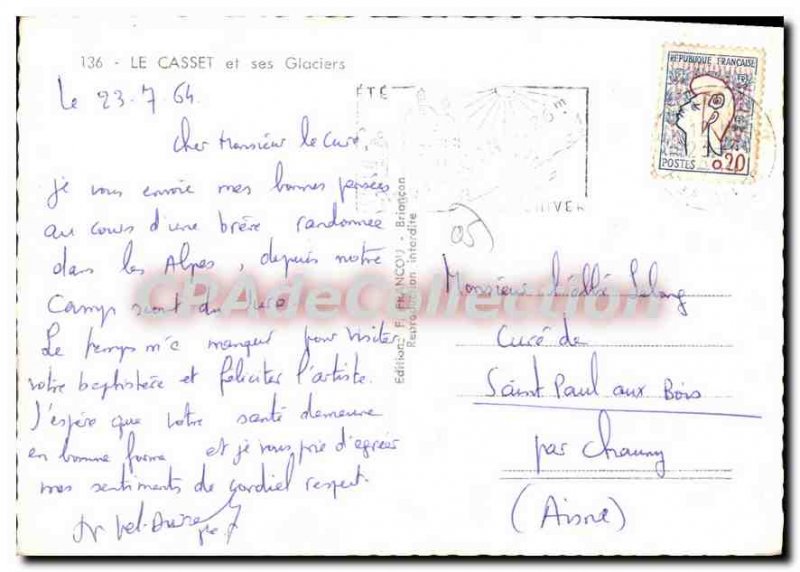 136 - LE CASSET et ses Glaciers
le 23.7.64.
Cher Monsieur le Curé,
je vous envoie mes bonnes pensées
au cours d'une brève randonnée
dans les Alpes, depuis notre
Camp du Jura
Le temps m'a manqué pour visiter
votre baptistère et féliciter l'artiste.
J'espère que votre santé demeure
en bonne forme et je vous prie d'agréer
mes sentiments de cordial respect.
ÉTÉ
HIVER
RÉPUBLIQUE FRANÇAISE
POSTES 0,20
05
Editions F. FRANCOU - Briançon
Reproduction interdite
CPAdeCollection
Monsieur l'abbé
Curé de
Saint Paul aux Bois
par Chauny
(Aisne)